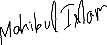 Mohibul Islam